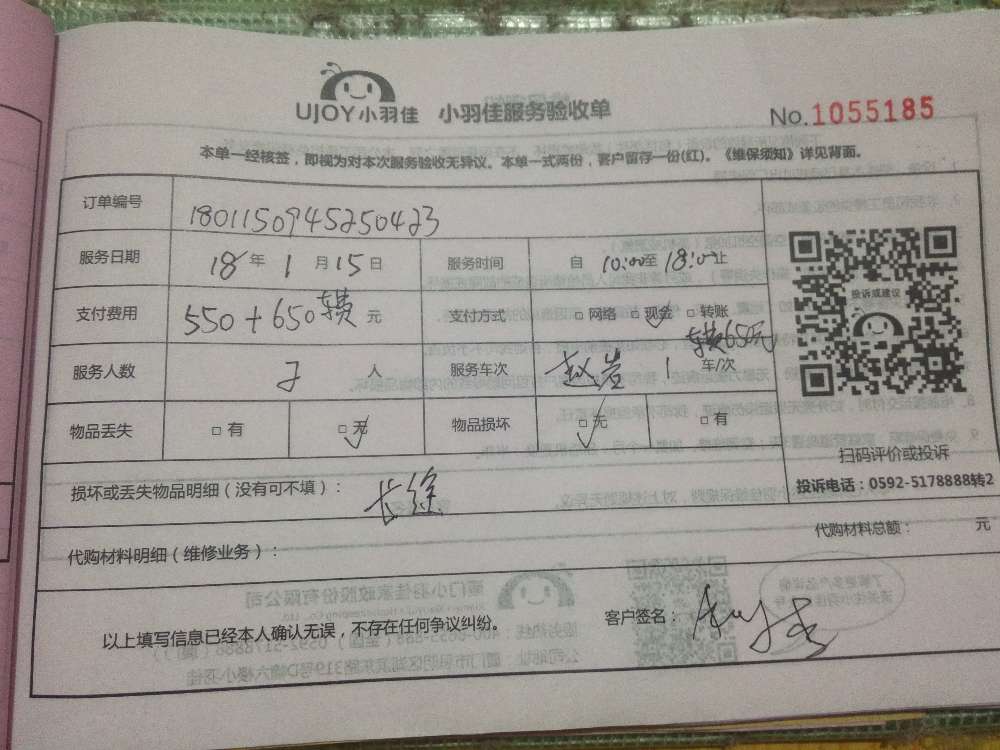 UJOY小羽佳 小羽佳服务验收单 No.1055185
本单一经核签，即视为对本次服务验收无异议。本单一式两份，客户留存一份(红)。《维保须知》详见背面。
订单编号 1801150945250423
服务日期 18 年 1 月 15 日 服务时间 自 10:00至 18:00止
支付费用 550+650 元 支付方式 □ 网络 □ 现金 □ 转账
650元
服务人数 2 人 服务车次 赵岩 1 车/次
物品丢失 □ 有 □ 无 物品损坏 □ 无 □ 有
投诉或建议
扫码评价或投诉
投诉电话：0592-5178888转2
损坏或丢失物品明细（没有可不填）： 长途
代购材料明细（维修业务）： 代购材料总额： 元
以上填写信息已经本人确认无误，不存在任何争议纠纷。 客户签名：